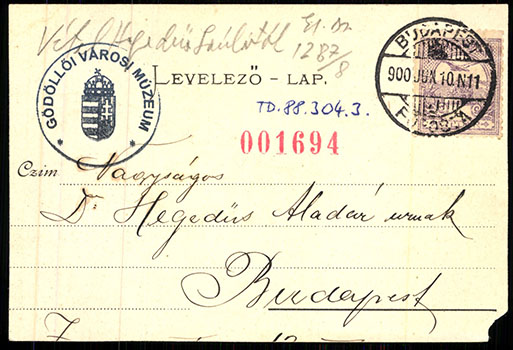 Vét. Hegedüs
1287
8
GÖDÖLLŐI VÁROSI MÚZEUM
LEVELEZŐ - LAP.
BUDAPEST
900 JUN. 10 N11
TD.88.304.3.
001694
Czim
Nagyságos
Dr Hegedüs Aladár urnak
Budapest